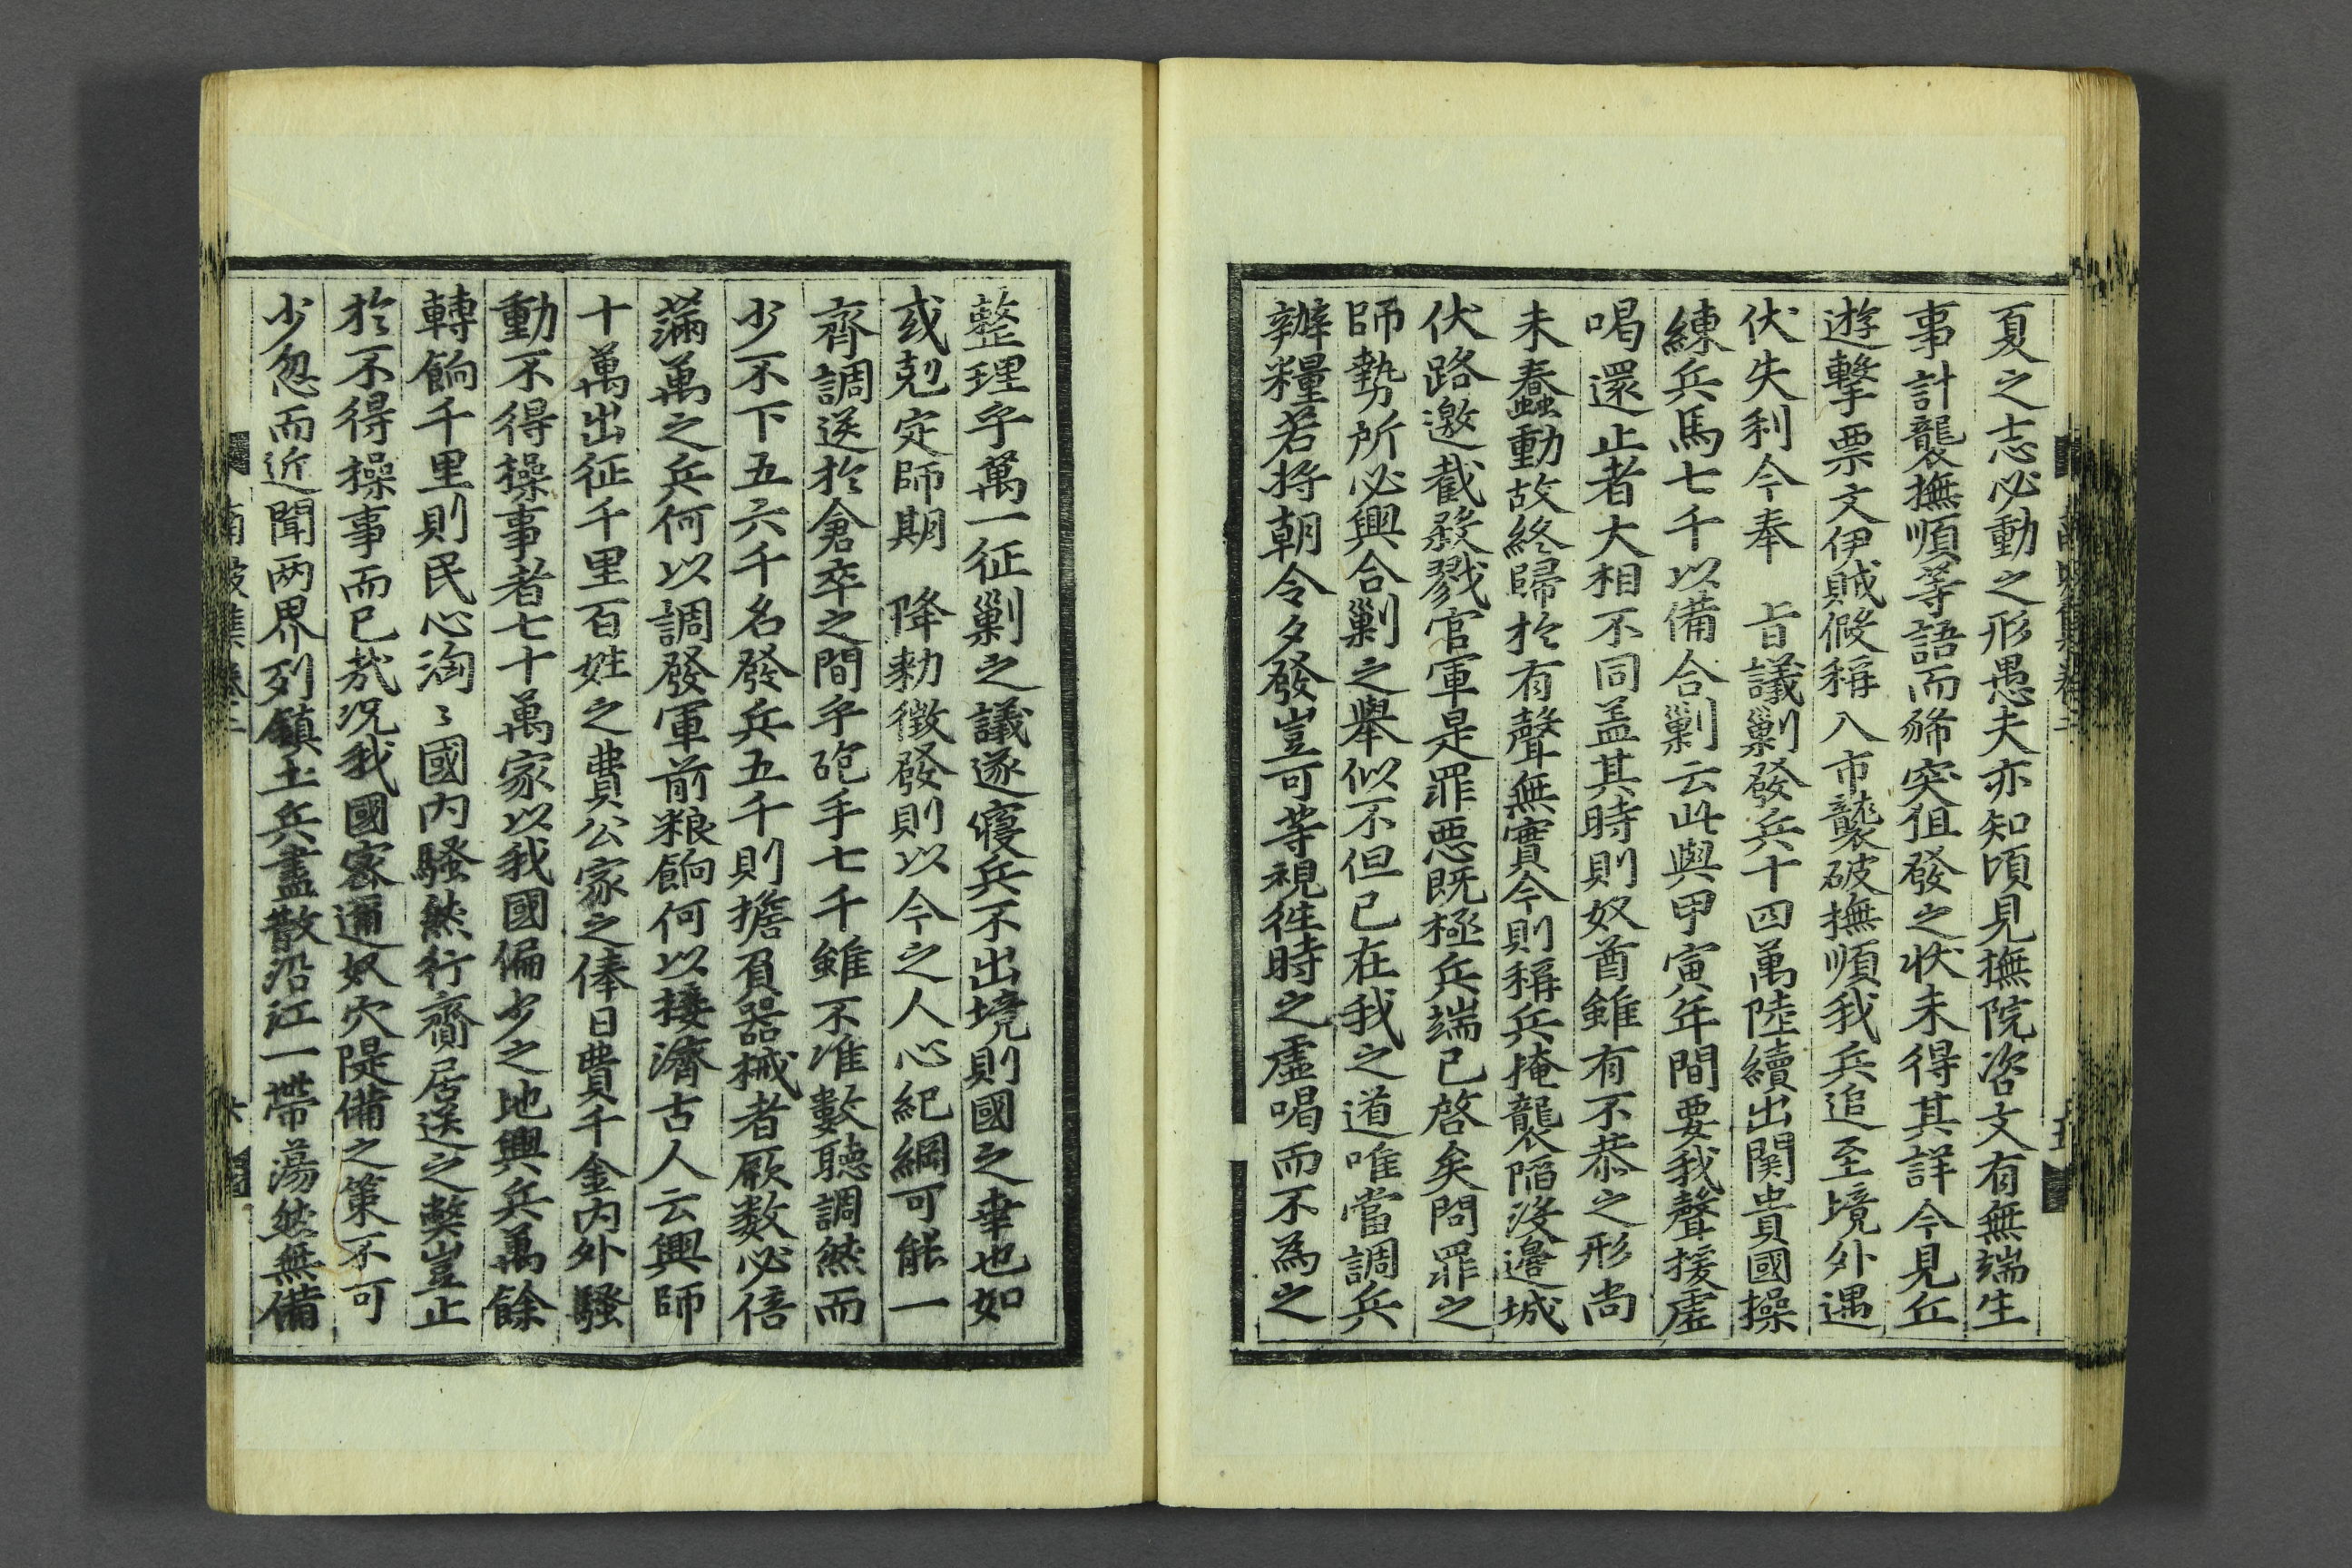 夏之志必動之形愚夫亦知頃見撫院咨文有無端生
事計襲撫順等語而豨突狙發之狀未得其詳今見丘
遊擊票文伊賊假稱入市襲破撫順我兵追至境外遇
伏失利今奉 旨議剿發兵十四萬陸續出関貴國操
練兵馬七千以備合剿云此與甲寅年間要我聲援虛
喝還止者大相不同盖其時則奴酋雖有不恭之形尚
未蠢動故終歸於有聲無實今則稱兵掩襲陷沒邊城
伏路邀截殺戮官軍是罪惡既極兵端已啓矣問罪之
師勢所必興合剿之舉似不但已在我之道唯當調兵
辦糧若將朝令夕發豈可等視徃時之虛喝而不為之
整理乎萬一征剿之議遂寢兵不出境則國之幸也如
或剋定師期 降勑徵發則以今之人心紀綱可能一
齊調送於倉卒之間乎砲手七千雖不准數聽調然而
少不下五六千名發兵五千則擔負器械者厥数必倍
滿萬之兵何以調發軍前粮餉何以接濟古人云興師
十萬出征千里百姓之費公家之俸日費千金內外騷
動不得操事者七十萬家以我國偏少之地興兵萬餘
轉餉千里則民心洶〻國內騷然行齎居送之弊豈止
於不得操事而已㢤况我國密邇奴穴隄備之策不可
少忽而近聞两界列鎮土兵盡散沿江一帶蕩然無備